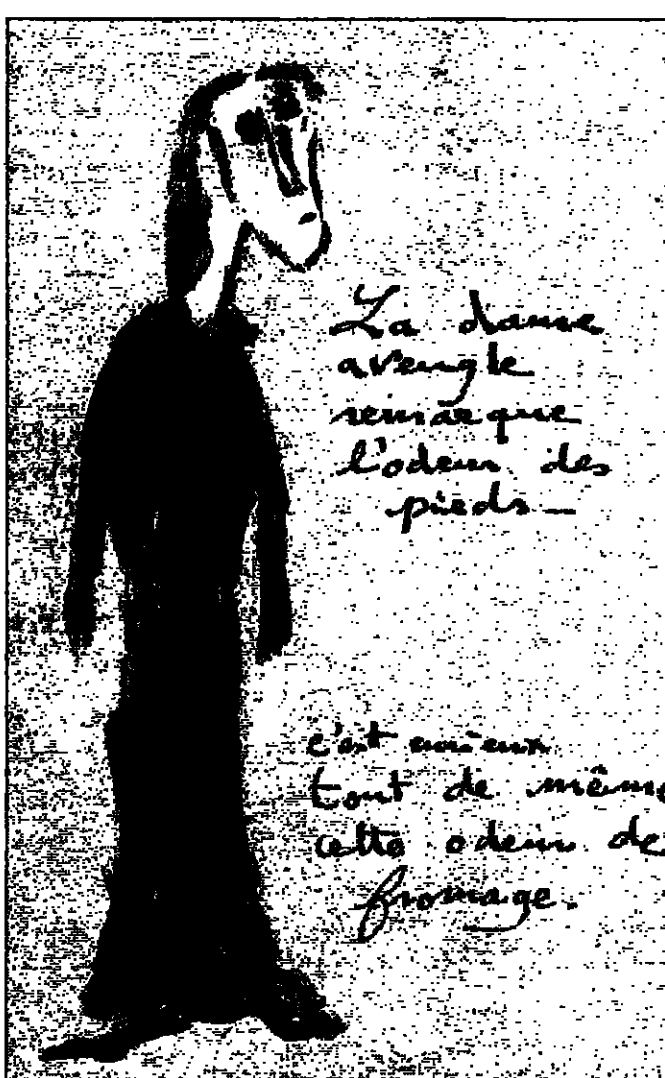 La dame
aveugle
remarque
l'odeur des
pieds —
c'est curieux
tout de même
cette odeur de
fromage.